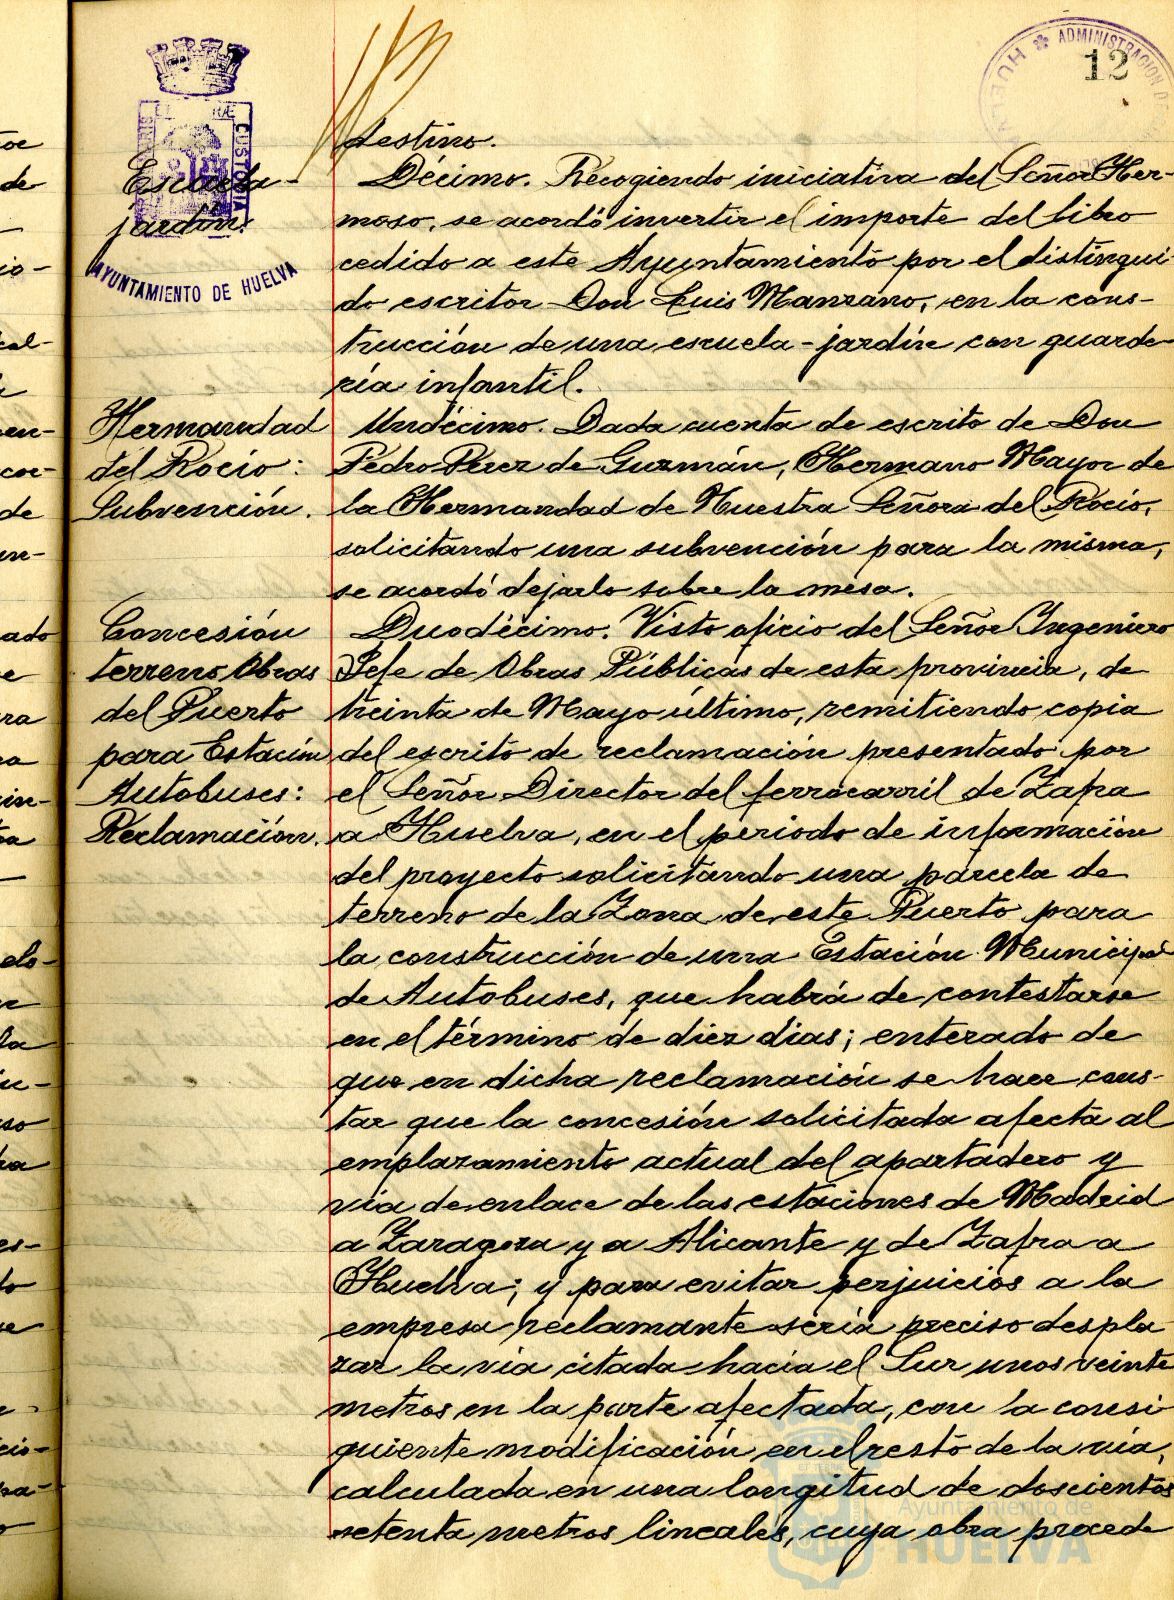 12
ADMINISTRACION DE
HUELVA
AYUNTAMIENTO DE HUELVA
Escuela-
jardín:
destino.
Décimo. Recogiendo iniciativa del Señor Her-
moso, se acordó invertir el importe del libro
cedido a este Ayuntamiento por el distingui-
do escritor Don Luis Manzano, en la cons-
trucción de una escuela-jardín con guarde-
ría infantil.
Hermandad
del Rocío:
Subvención.
Undécimo. Dada cuenta de escrito de Don
Pedro Pérez de Guzmán, Hermano Mayor de
la Hermandad de Nuestra Señora del Rocío,
solicitando una subvención para la misma,
se acordó dejarlo sobre la mesa.
Concesión
terreno Obras
del Puerto
para Estación
Autobuses:
Reclamación.
Duodécimo. Visto oficio del Señor Ingeniero
Jefe de Obras Públicas de esta provincia, de
treinta de Mayo último, remitiendo copia
del escrito de reclamación presentado por
el Señor Director del ferrocarril de Zafra
a Huelva, en el periodo de información
del proyecto solicitando una parcela de
terreno de la Zona de este Puerto para
la construcción de una Estación Municipal
de Autobuses, que habrá de contestarse
en el término de diez dias; enterado de
que en dicha reclamación se hace cons-
tar que la concesión solicitada afecta al
emplazamiento actual del apartadero y
vía de enlace de las estaciones de Madrid
a Zaragoza y a Alicante y de Zafra a
Huelva; y para evitar perjuicios a la
empresa reclamante sería preciso despla-
zar la vía citada hacia el Sur unos veinte
metros en la parte afectada, con la consi-
guiente modificación en el resto de la vía,
calculada en una longitud de doscientos
setenta metros lineales, cuya obra procede
Ayuntamiento de
HUELVA